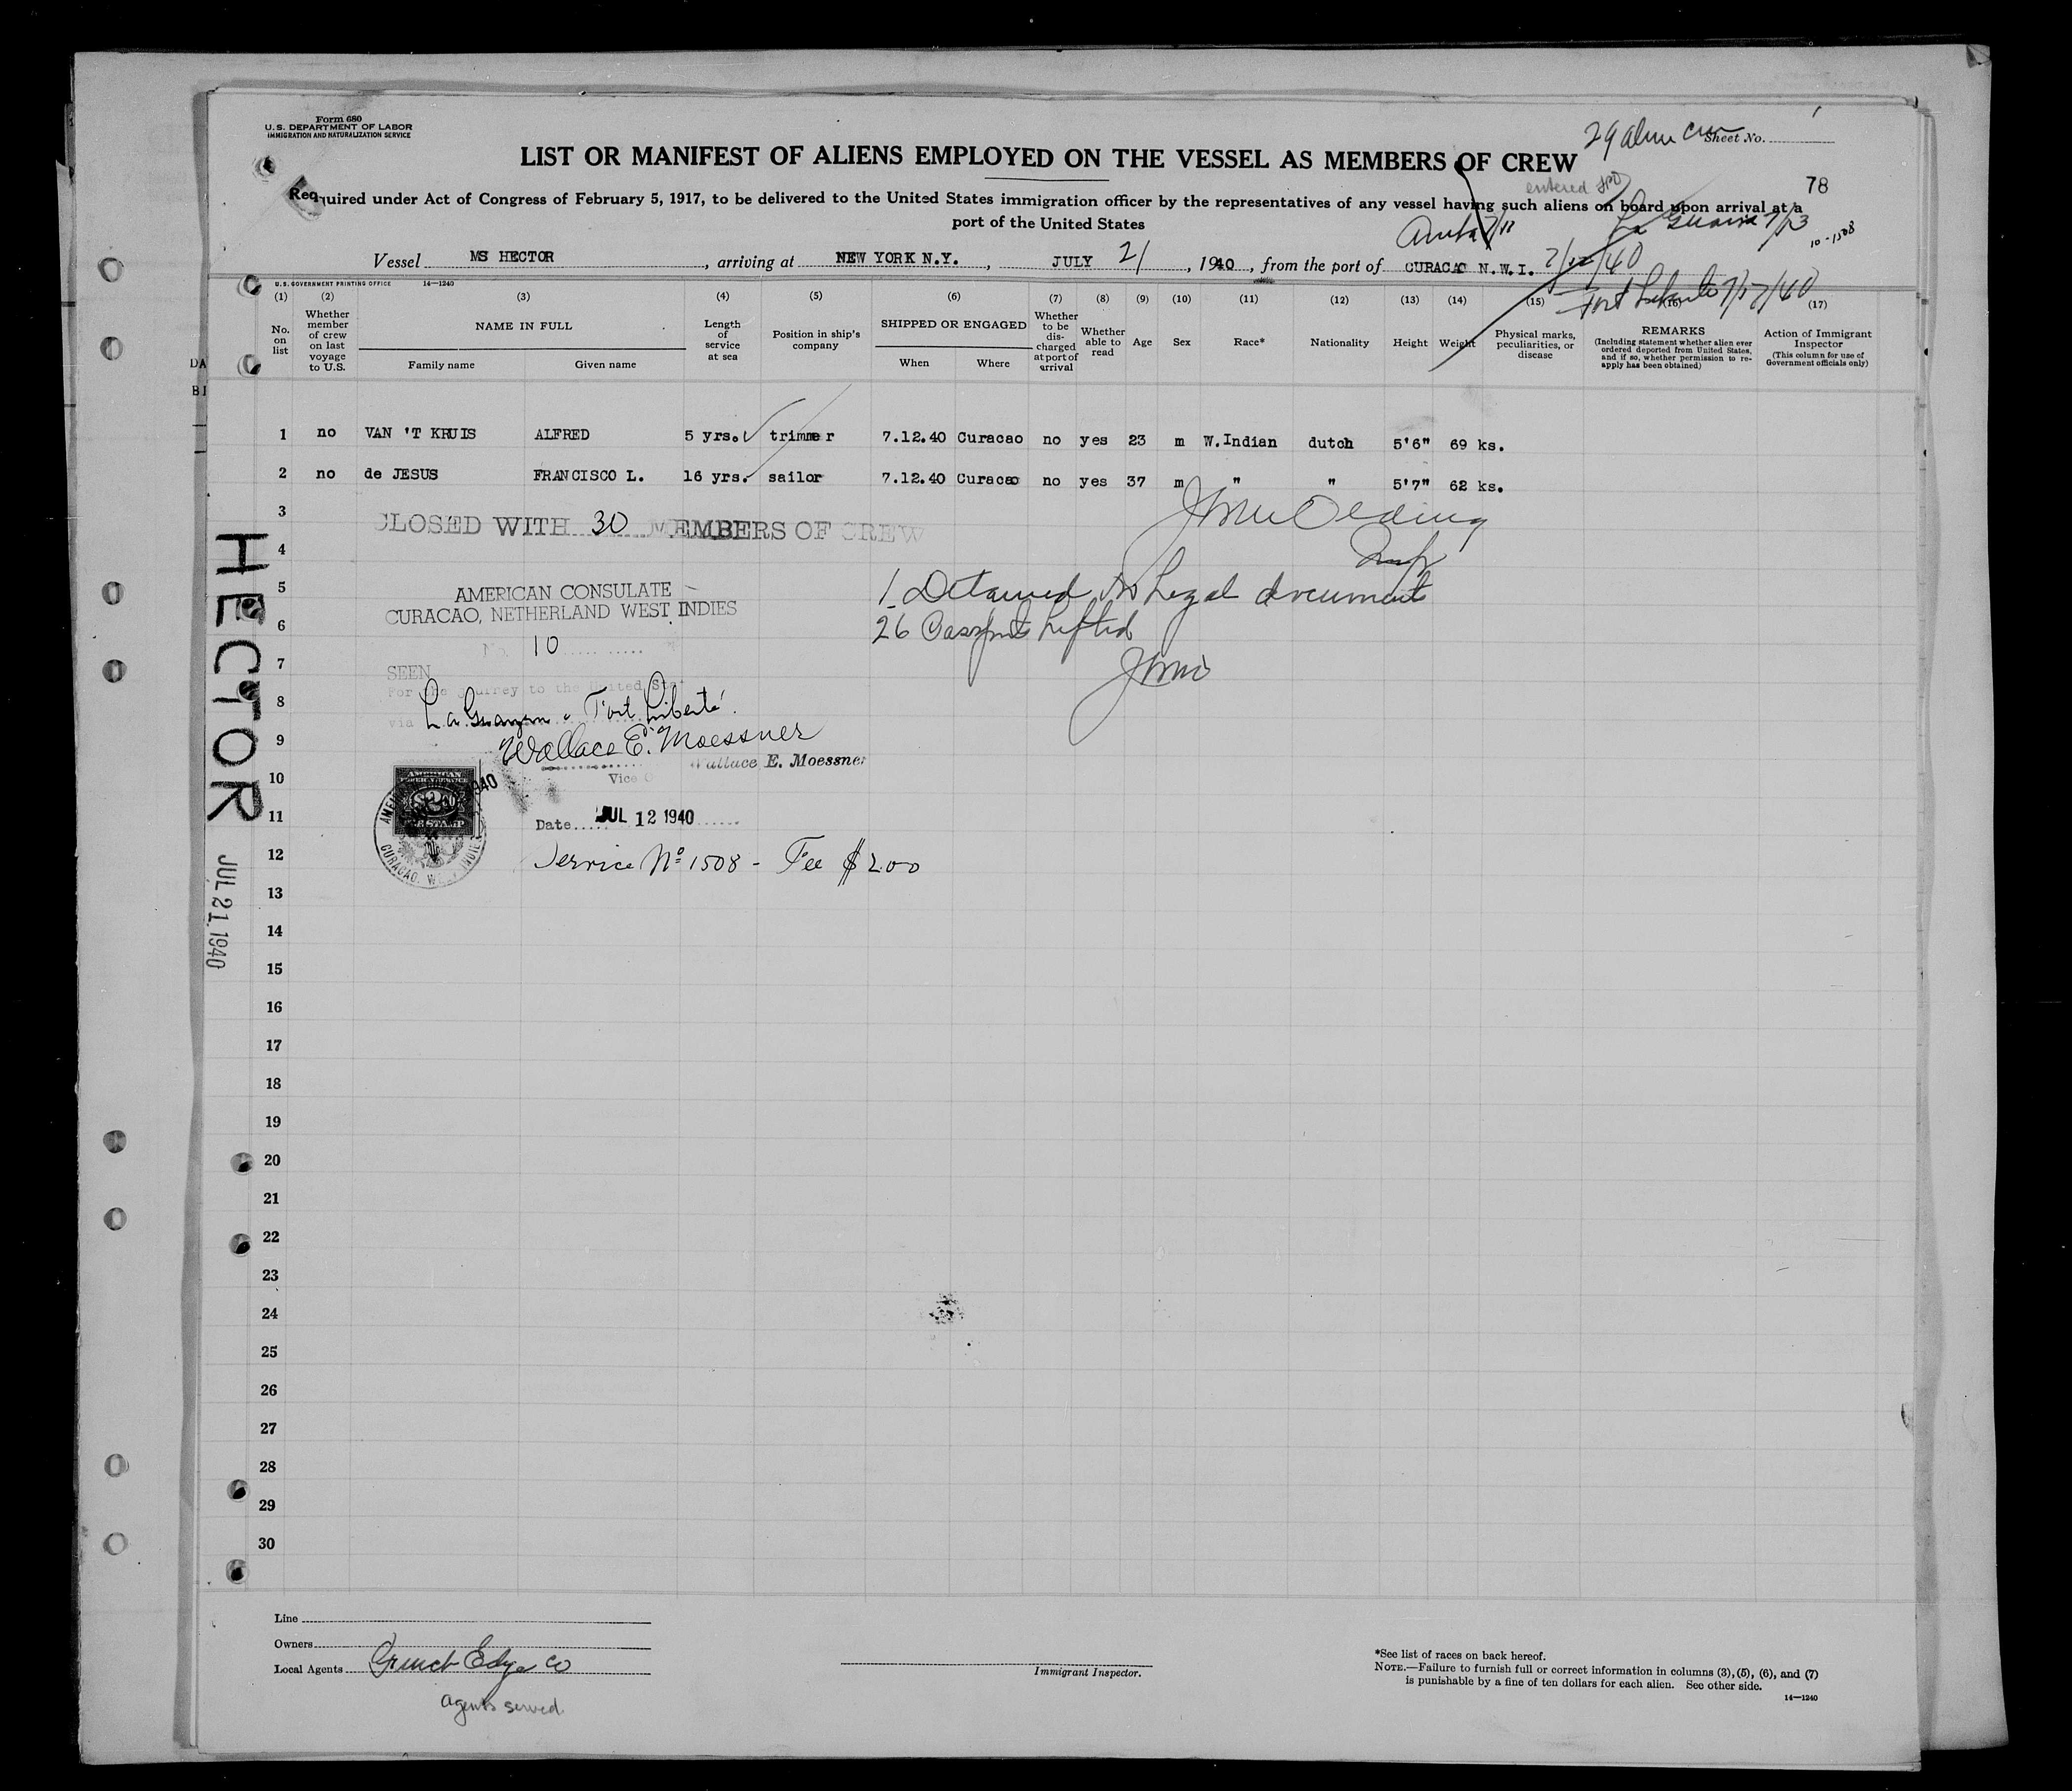 Form 680
U.S. DEPARTMENT OF LABOR
IMMIGRATION AND NATURALIZATION SERVICE
29 alien crew
Sheet No.
LIST OR MANIFEST OF ALIENS EMPLOYED ON THE VESSEL AS MEMBERS OF CREW
entered
78
Required under Act of Congress of February 5, 1917, to be delivered to the United States immigration officer by the representatives of any vessel having such aliens on board upon arrival at a
port of the United States
Aruba 7/11
La Guaira 7/13
10-1508
Vessel MS HECTOR, arriving at NEW YORK N.Y., JULY 21, 1940, from the port of CURACAO N.W.I. 7/12/40
Fort Liberté 7/17/40
U.S. GOVERNMENT PRINTING OFFICE 14—1240
(1) (2) (3) (4) (5) (6) (7) (8) (9) (10) (11) (12) (13) (14) (15) (16) (17)
No. on list
Whether member of crew on last voyage to U.S.
NAME IN FULL
Family name Given name
Length of service at sea
Position in ship's company
SHIPPED OR ENGAGED
When Where
Whether to be discharged at port of arrival
Whether able to read
Age
Sex
Race*
Nationality
Height
Weight
Physical marks, peculiarities, or disease
REMARKS
(Including statement whether alien ever ordered deported from United States, and if so, whether permission to re-apply has been obtained)
Action of Immigrant Inspector
(This column for use of Government officials only)
DA
BI
1 no VAN 'T KRUIS ALFRED 5 yrs. trimmer 7.12.40 Curacao no yes 23 m W.Indian dutch 5'6" 69 ks.
2 no de JESUS FRANCISCO L. 16 yrs. sailor 7.12.40 Curacao no yes 37 m " " 5'7" 62 ks.
3
CLOSED WITH 30 MEMBERS OF CREW
4
Insp
5
AMERICAN CONSULATE
1 Detained no Legal documents
CURACAO, NETHERLAND WEST INDIES
6
26 Passports Lifted
No. 10
7
SEEN
For the journey to the United States
8
via La Guayra & Fort Liberté.
9
Wallace E. Moessner
Wallace E. Moessner
10
Vice C
AMERICAN
FOREIGN SERVICE
FEE STAMP
CURACAO, WEST INDIES
11
Date JUL 12 1940
12
Service No 1508 - Fee $2.00
13
14
15
16
17
18
19
20
21
22
23
24
25
26
27
28
29
30
HECTOR
JUL 21 1940
Line
Owners
Local Agents Funch Edye Co
agents served
Immigrant Inspector.
*See list of races on back hereof.
NOTE.—Failure to furnish full or correct information in columns (3), (5), (6), and (7)
is punishable by a fine of ten dollars for each alien. See other side.
14—1240